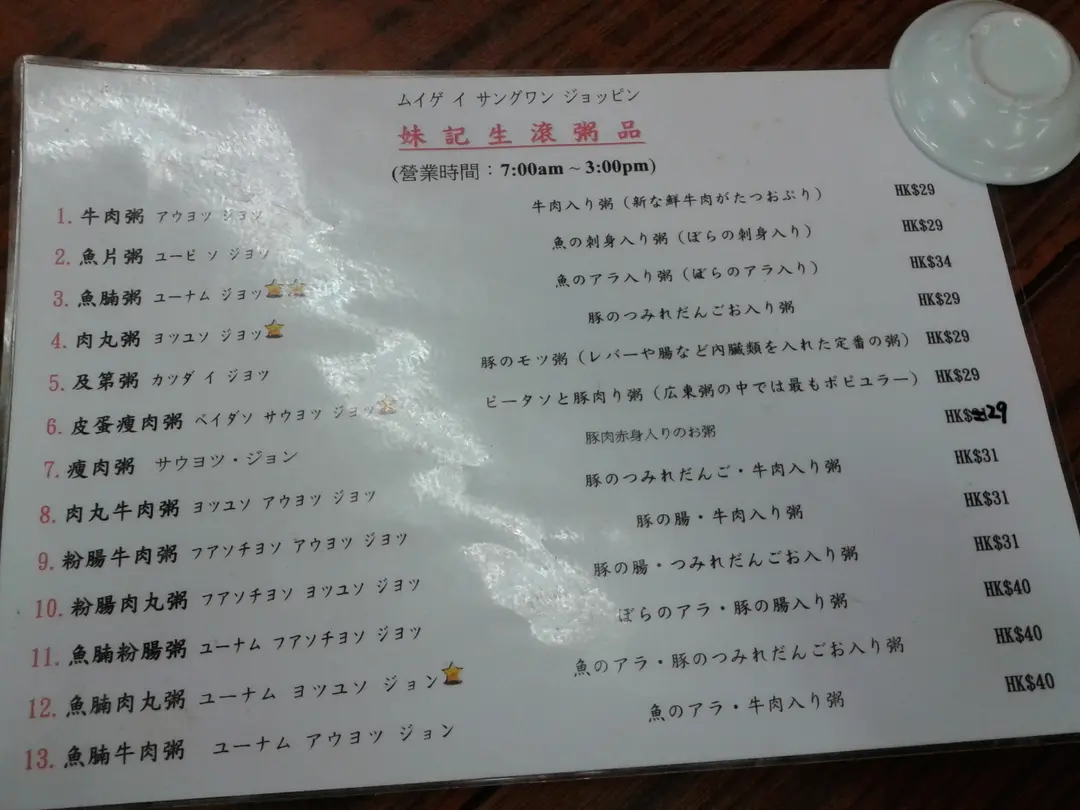 ムイゲ イ サングワン ジョッピン
妹記生滾粥品
(營業時間：7:00am ~ 3:00pm)
1. 牛肉粥 アウヨツ ジョッ 牛肉入り粥（新な鮮牛肉がたつおぷり） HK$29
2. 魚片粥 ユーピ ソ ジョッ 魚の刺身入り粥（ぼらの刺身入り） HK$29
3. 魚腩粥 ユーナム ジョッ 魚のアラ入り粥（ぼらのアラ入り） HK$34
4. 肉丸粥 ヨツユソ ジョッ 豚のつみれだんごお入り粥 HK$29
5. 及第粥 カツダ イ ジョッ 豚のモツ粥（レバーや腸など內臓類を入れた定番の粥） HK$29
6. 皮蛋瘦肉粥 ペイダソ サウヨツ ジョッ ピータソと豚肉り粥（広東粥の中では最もポピユラー） HK$29
7. 瘦肉粥 サウヨツ・ジョン 豚肉赤身入りのお粥 HK$29
8. 肉丸牛肉粥 ヨツユソ アウヨツ ジョッ 豚のつみれだんご・牛肉入り粥 HK$31
9. 粉腸牛肉粥 フアソチヨソ アウヨツ ジョッ 豚の腸・牛肉入り粥 HK$31
10. 粉腸肉丸粥 フアソチヨソ ヨツユソ ジョッ 豚の腸・つみれだんごお入り粥 HK$31
11. 魚腩粉腸粥 ユーナム フアソチヨソ ジョッ ぼらのアラ・豚の腸入り粥 HK$40
12. 魚腩肉丸粥 ユーナム ヨツユソ ジョン 魚のアラ・豚のつみれだんごお入り粥 HK$40
13. 魚腩牛肉粥 ユーナム アウヨツ ジョン 魚のアラ・牛肉入り粥 HK$40